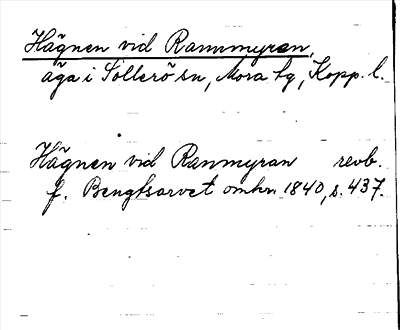 Hägnen vid Rannmyran,
äga i Sollerö sn, Mora tg, Kopp. l.
Hägnen vid Ranmyran revb.
f. Bengtsarvet omkr. 1840, s. 437.